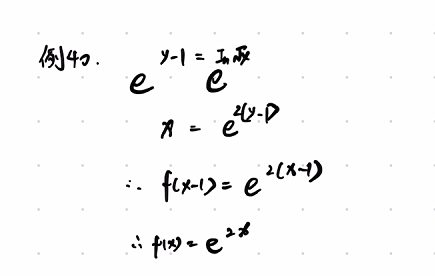 例4).
e^{y-1} = e^{In√x}
x = e^{2(y-1)}
∴ f(x-1) = e^{2(x-1)}
∴ f(x) = e^{2x}